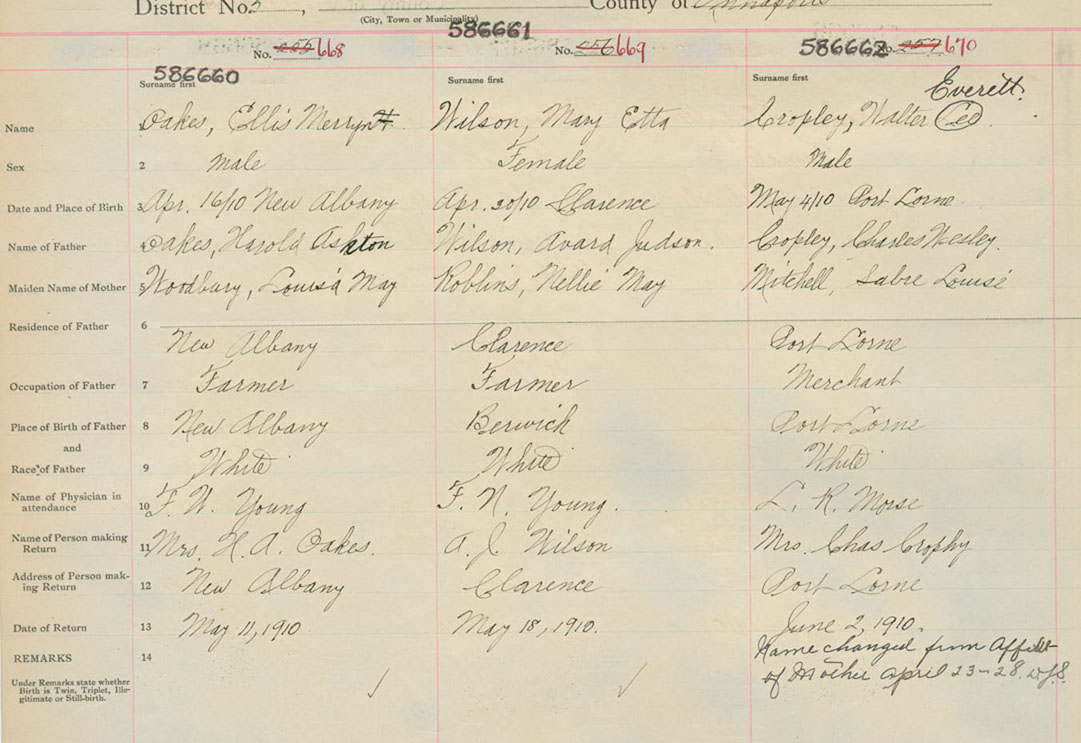 District No. 3, County of Annapolis
(City, Town or Municipality)
586661
No. 255 668 No. 256 669 586662 No. 257 670
586660
Surname first Surname first Surname first
Everett.
Name 1 Oakes, Ellis Merryn Wilson, Mary Etta Cropley, Walter Ced.
Sex 2 male Female Male
Date and Place of Birth 3 Apr. 16/10 New Albany Apr. 20/10 Clarence May 4/10 Port Lorne.
Name of Father 4 Oakes, Harold Ashton Wilson, Avard Judson. Cropley, Charles Wesley.
Maiden Name of Mother 5 Woodbury, Louisa May Roblins, Nellie May Mitchell, Sabre Louise
Residence of Father 6
New Albany Clarence Port Lorne
Occupation of Father 7 Farmer Farmer Merchant
Place of Birth of Father 8 New Albany Berwick Port Lorne
and
Race of Father 9 White White White
Name of Physician in
attendance 10 F. W. Young F. W. Young. L. R. Morse
Name of Person making
Return 11 Mrs. H. A. Oakes. A. J. Wilson Mrs. Chas Crophy
Address of Person mak-
ing Return 12 New Albany Clarence Port Lorne
Date of Return 13 May 11, 1910 May 18, 1910. June 2, 1910.
REMARKS 14 Name changed from Affidt
of Mother April 23-28. W.J.S.
Under Remarks state whether
Birth is Twin, Triplet, Ille-
gitimate or Still-birth.